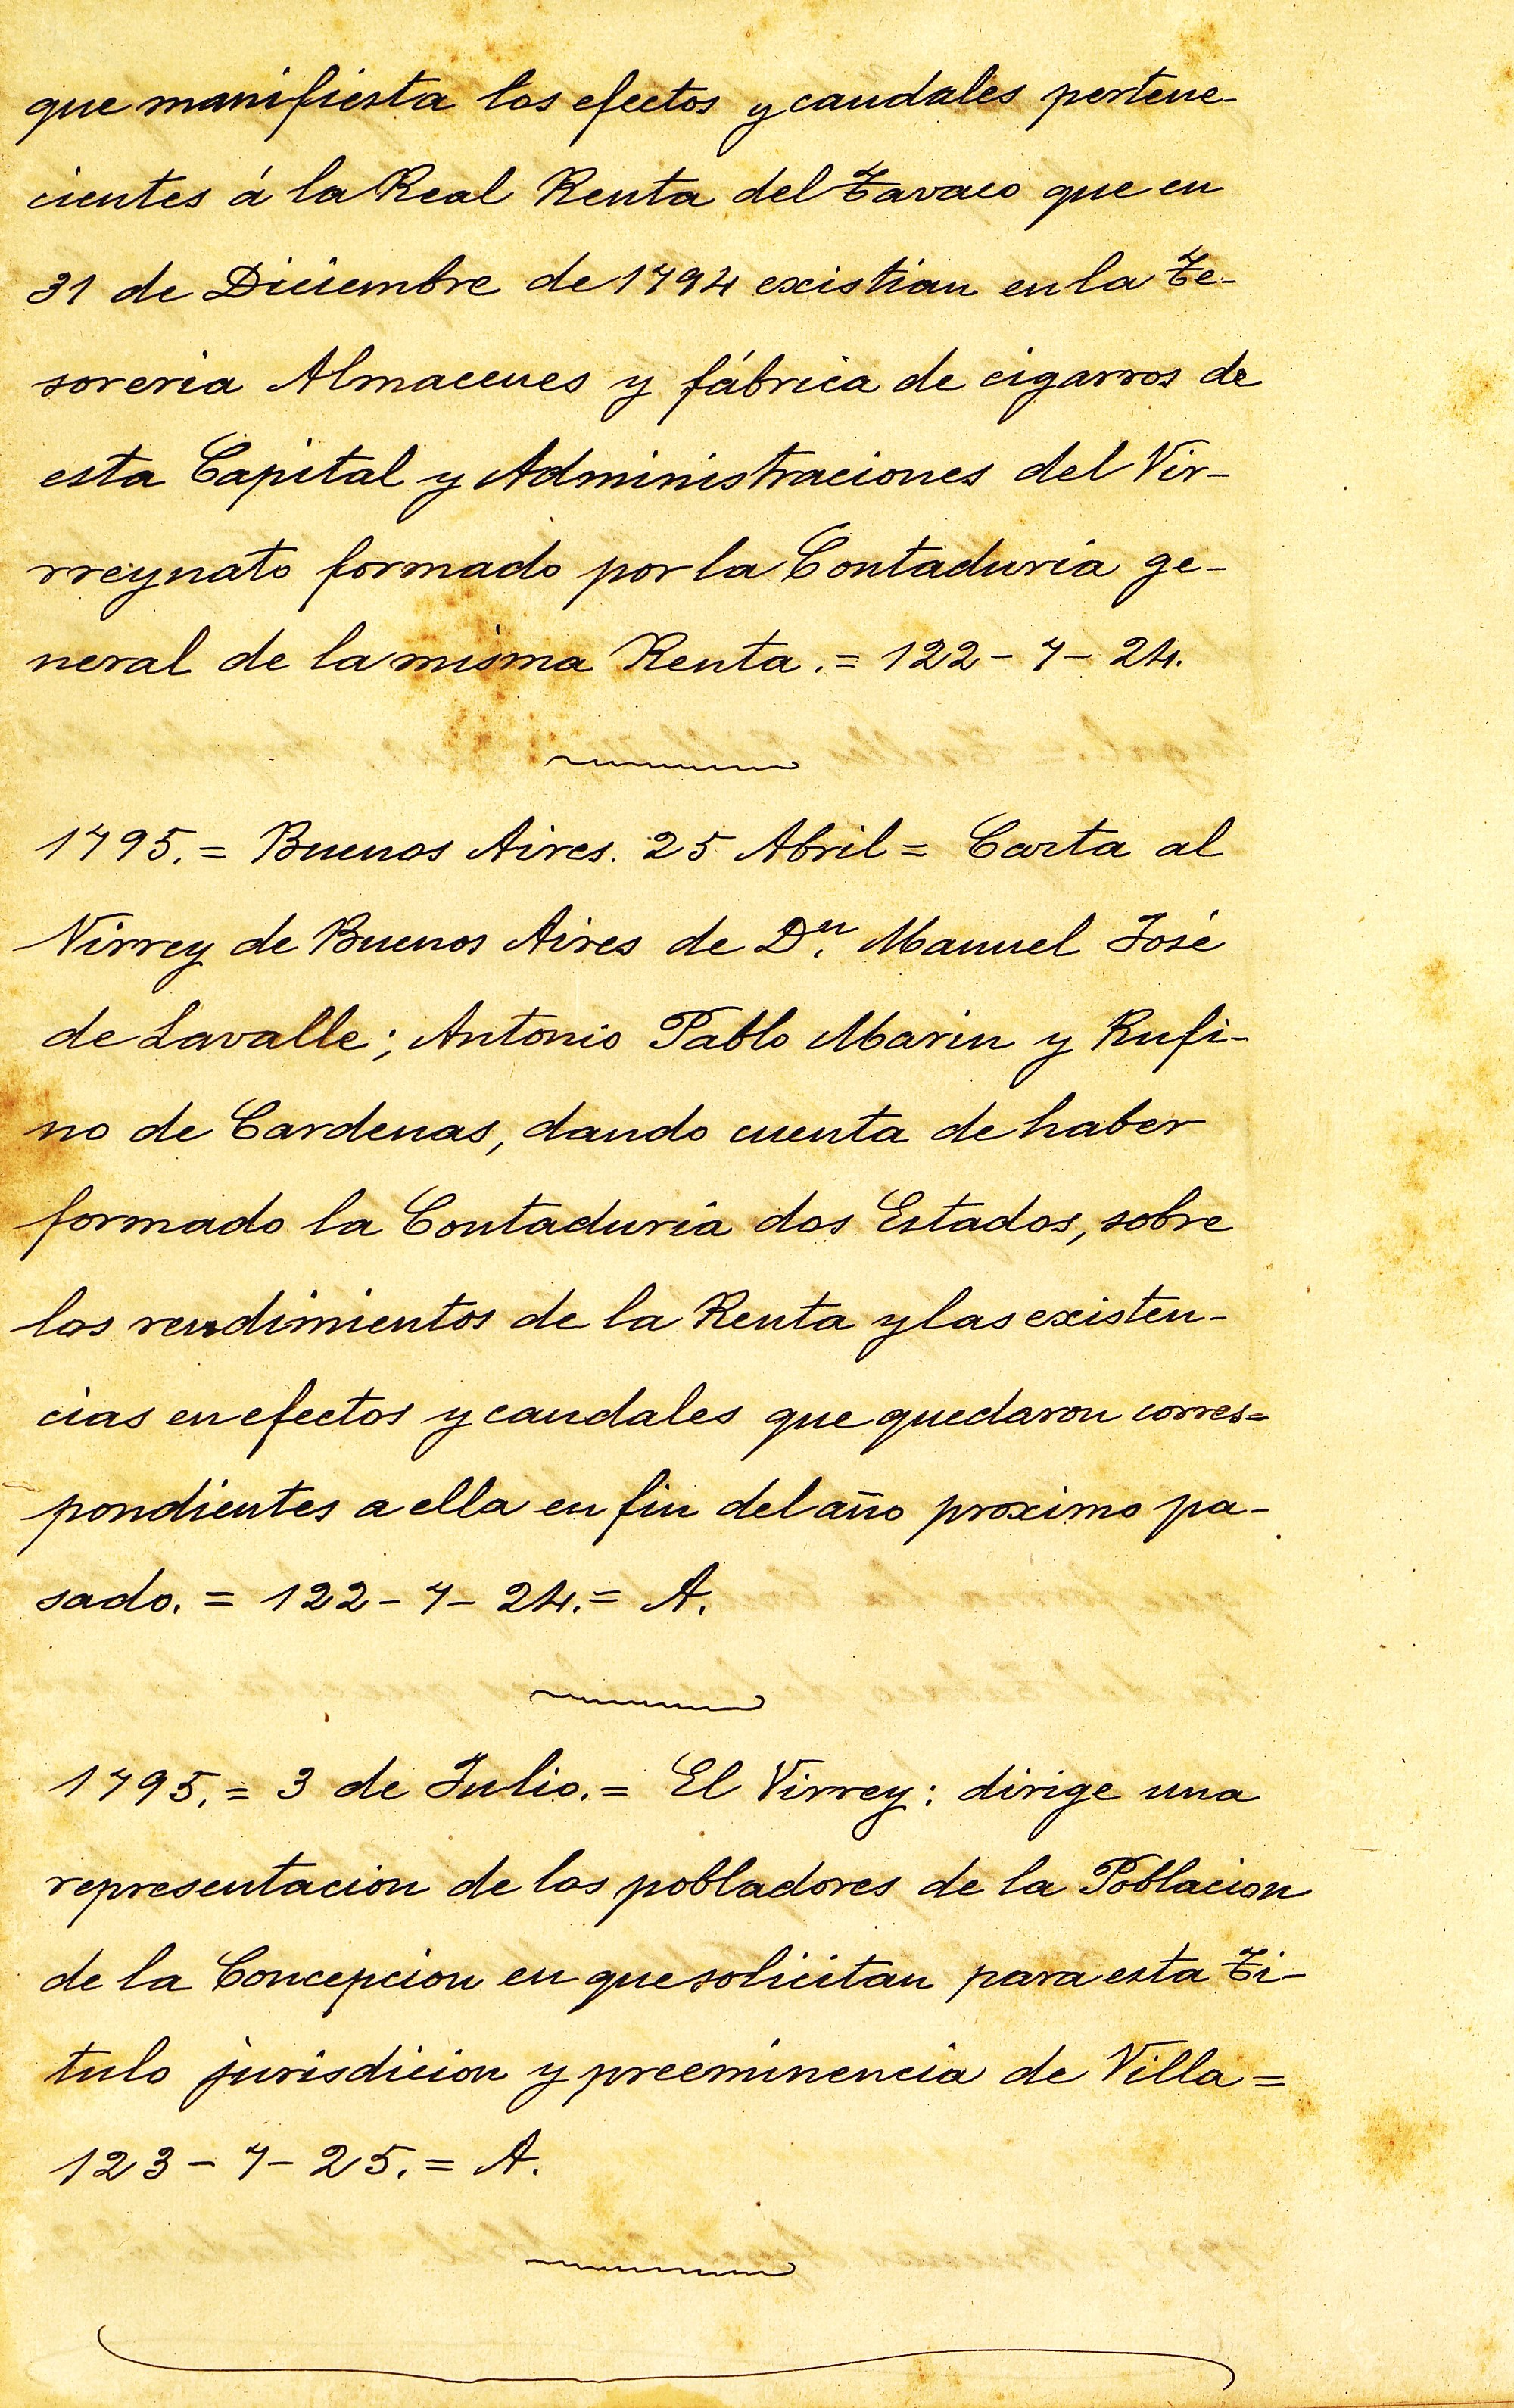 que manifiesta los efectos y caudales pertene-
cientes á la Real Renta del Tavaco que en
31 de Diciembre de 1794 existian en la Te-
soreria Almacenes y fábrica de cigarros de
esta Capital y Administraciones del Vir-
rreynato formado por la Contaduria ge-
neral de la misma Renta. = 122 - 7 - 24.
1795. = Buenos Aires. 25 Abril = Carta al
Virrey de Buenos Aires de Dn. Manuel José
de Lavalle; Antonio Pablo Marin y Rufi-
no de Cardenas, dando cuenta de haber
formado la Contaduria dos Estados, sobre
los rendimientos de la Renta y las existen-
cias en efectos y caudales que quedaron corres=
pondientes a ella en fin del año proximo pa-
sado. = 122 - 7 - 24. = A.
1795. = 3 de Julio. = El Virrey: dirige una
representacion de los pobladores de la Poblacion
de la Concepcion en que solicitan para esta Ti-
tulo jurisdicion y preeminencia de Villa =
123 - 7 - 25. = A.